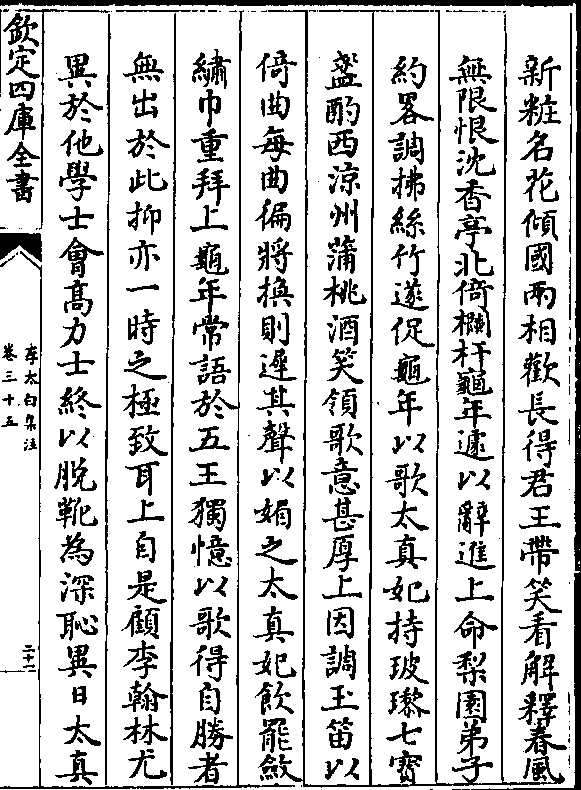 新粧名花傾國兩相歡長得君王帶笑看解釋春風
無限恨沈香亭北倚欄杆龜年遽以辭進上命梨園弟子
約畧調拂絲竹遂促龜年以歌太真妃持玻瓈七寳
盞酌西涼州蒲桃酒笑領歌意甚厚上因調玉笛以
倚曲每曲徧將換則遲其聲以媚之太真妃飲罷斂
繡巾重拜上龜年常語於五王獨憶以歌得自勝者
無出於此抑亦一時之極致耳上自是顧李翰林尤
異於他學士會髙力士終以脫靴為深恥異日太真
欽定四庫全書
李太白集注
卷三十五
二十二